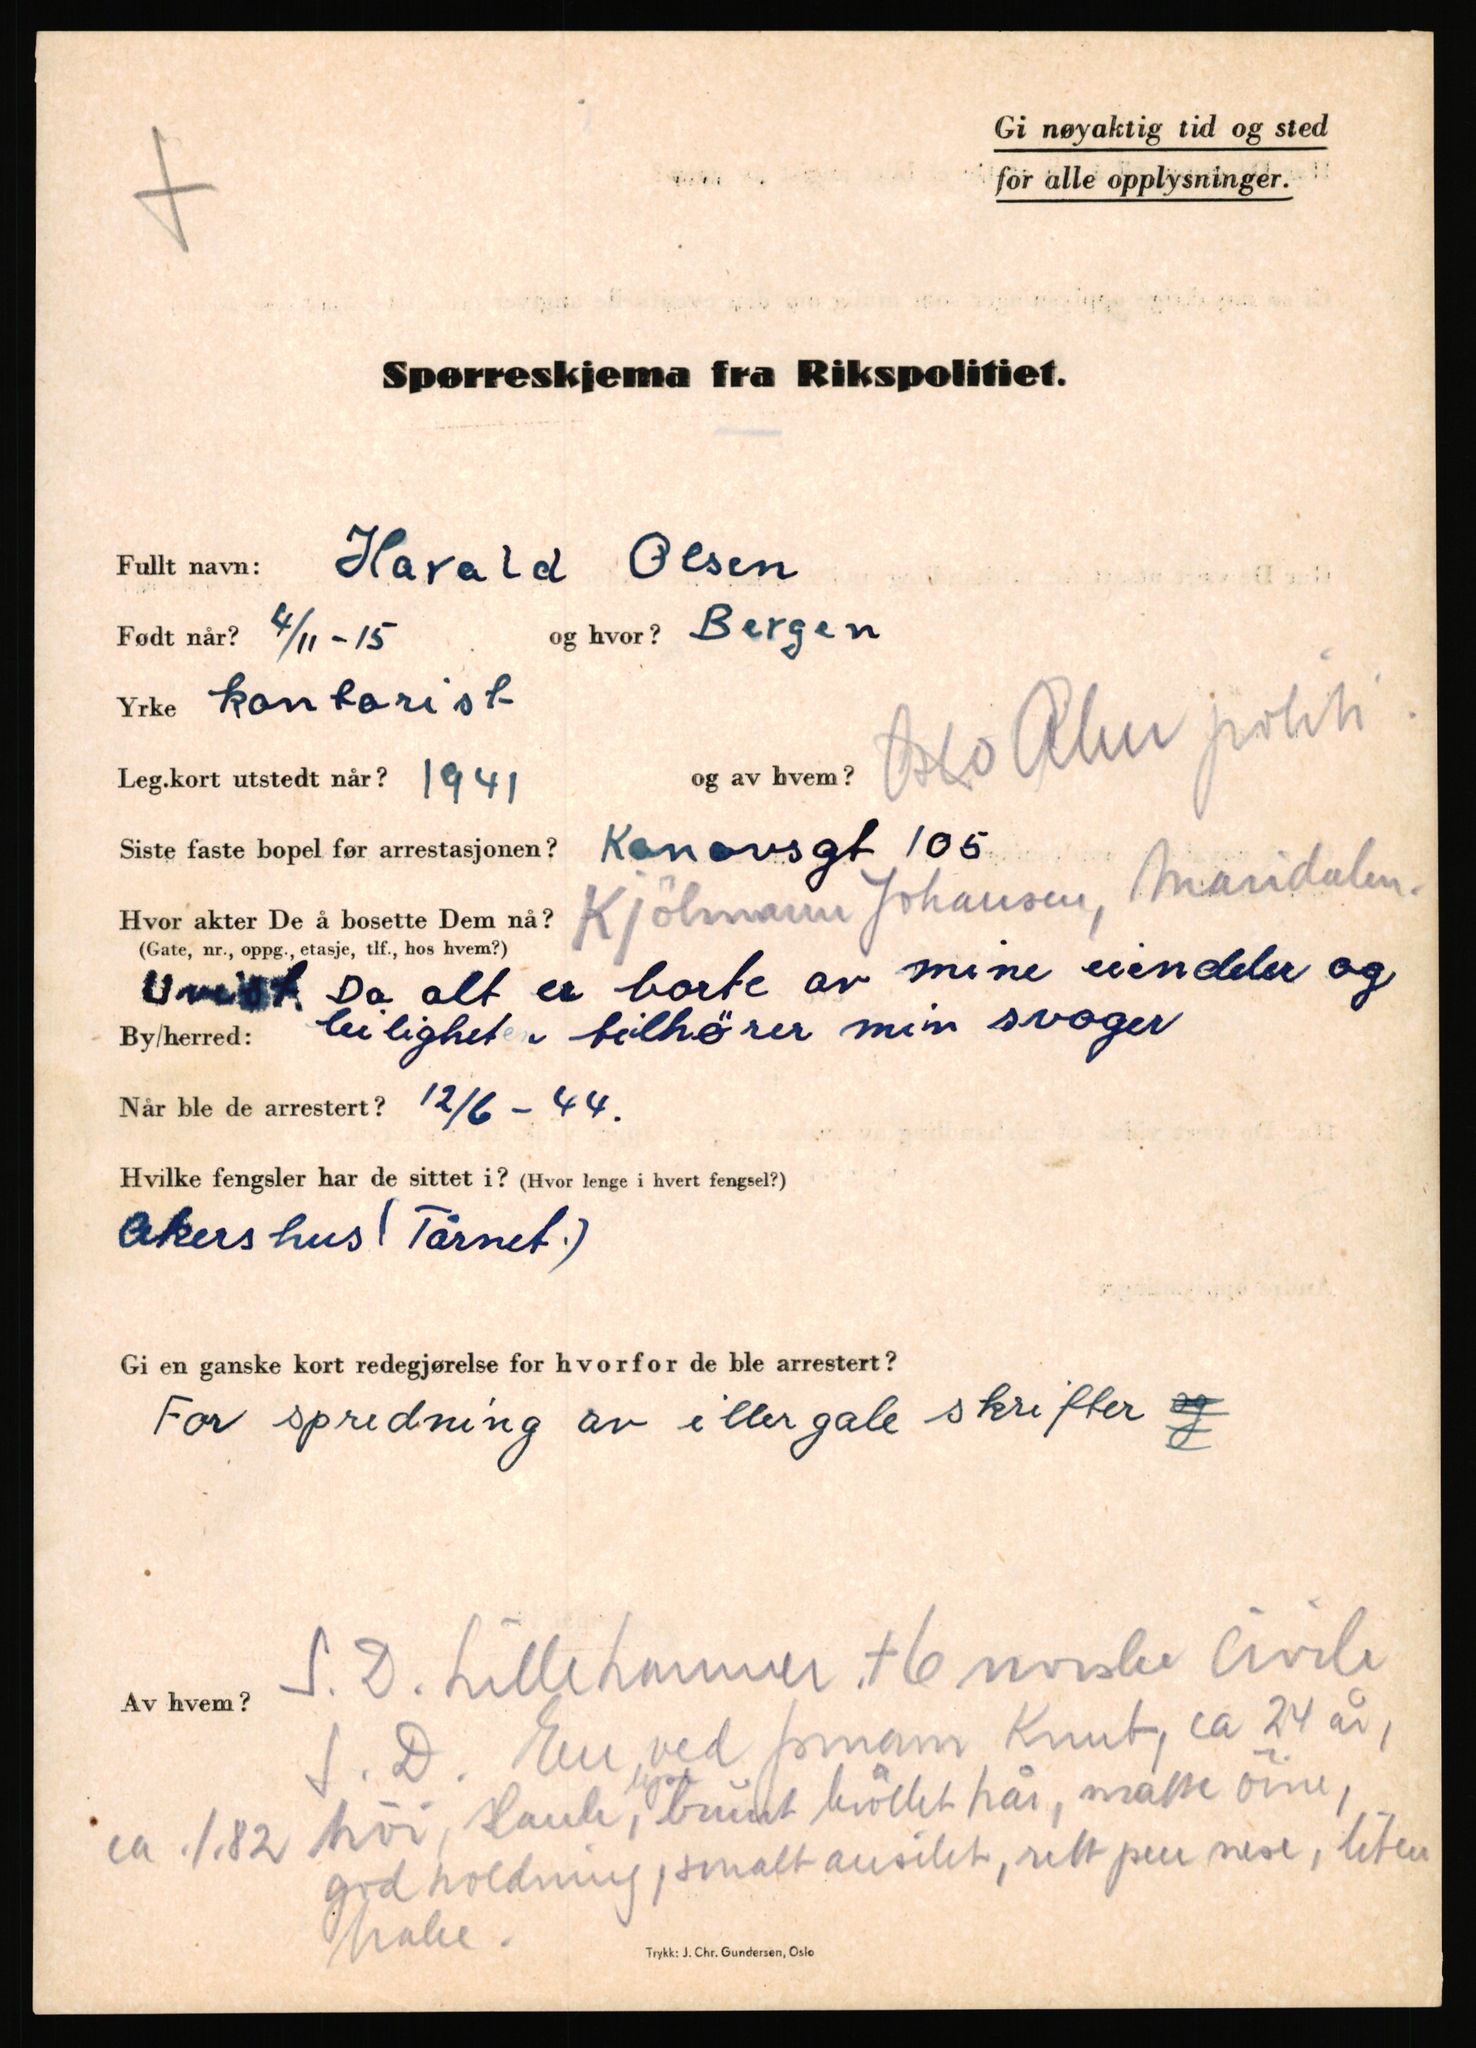 Gi nøyaktig tid og sted
for alle opplysninger.
Spørreskjema fra Rikspolitiet.
Fullt navn: Harald Olsen
Født når? 4/11-15 og hvor? Bergen
Yrke kontorist
Leg.kort utstedt når? 1941 og av hvem? Oslo politi
Siste faste bopel før arrestasjonen? Kanavsgt 105
Hvor akter De å bosette Dem nå? Kjölmann Johansen, Maridalen.
(Gate, nr., oppg., etasje, tlf., hos hvem?)
Uvist. Da alt er borte av mine eiendeler og
By/herred: leiligheten tilhører min svoger
Når ble de arrestert? 12/6 - 44.
Hvilke fengsler har de sittet i? (Hvor lenge i hvert fengsel?)
Akershus (Tårnet.)
Gi en ganske kort redegjørelse for hvorfor de ble arrestert?
For spredning av illergale skrifter og
S. D. Lillehammer. + 6 norske civile
Av hvem?
S. D. En ved fornavn Knut, ca 24 år,
ca. 1.82 höi, slank, brunt kröllet hår, matte öine,
god holdning, smalt ansikt, rett pen nese, liten
hake.
Trykk: J. Chr. Gundersen, Oslo